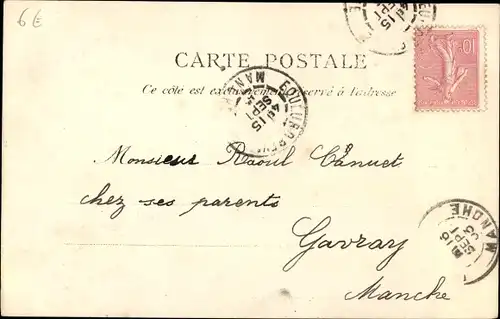 6€
CARTE POSTALE
Ce côté est exclusivement réservé à l'adresse
10
Monsieur Raoul Canuet
chez ses parents
Gavray
Manche
15
SEPT
MANCHE
16
SEPT